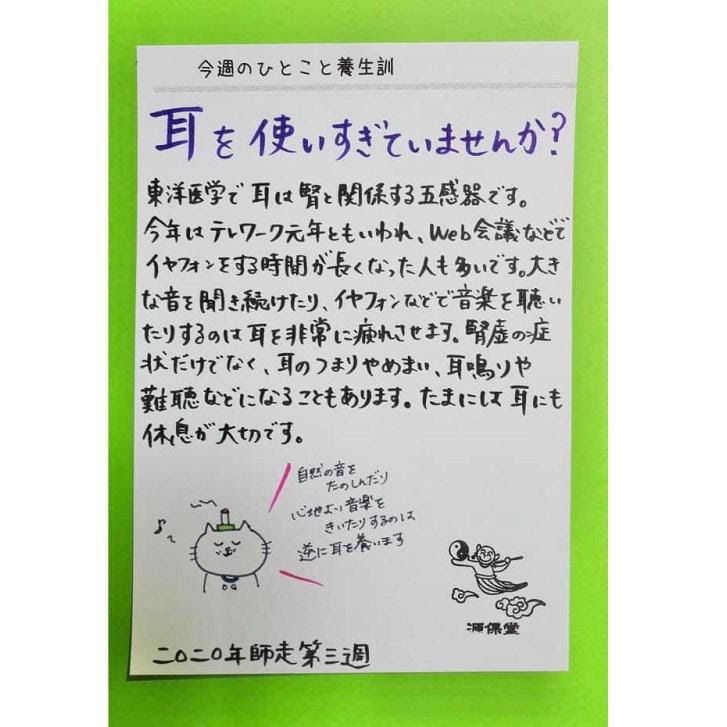 今週のひとこと養生訓
耳を使いすぎていませんか?
東洋医学で耳は腎と関係する五感器です。
今年はテレワーク元年ともいわれ、Web会議などで
イヤフォンをする時間が長くなった人も多いです。大き
な音を聞き続けたり、イヤフォンなどで音楽を聴い
たりするのは耳を非常に疲れさせます。腎虚の症
状だけでなく、耳のつまりやめまい、耳鳴りや
難聴などになることもあります。たまには耳にも
休息が大切です。
自然の音を
たのしんだり
心地よい音楽を
きいたりするのは
逆に耳を養います
源保堂
二〇二〇年師走第三週